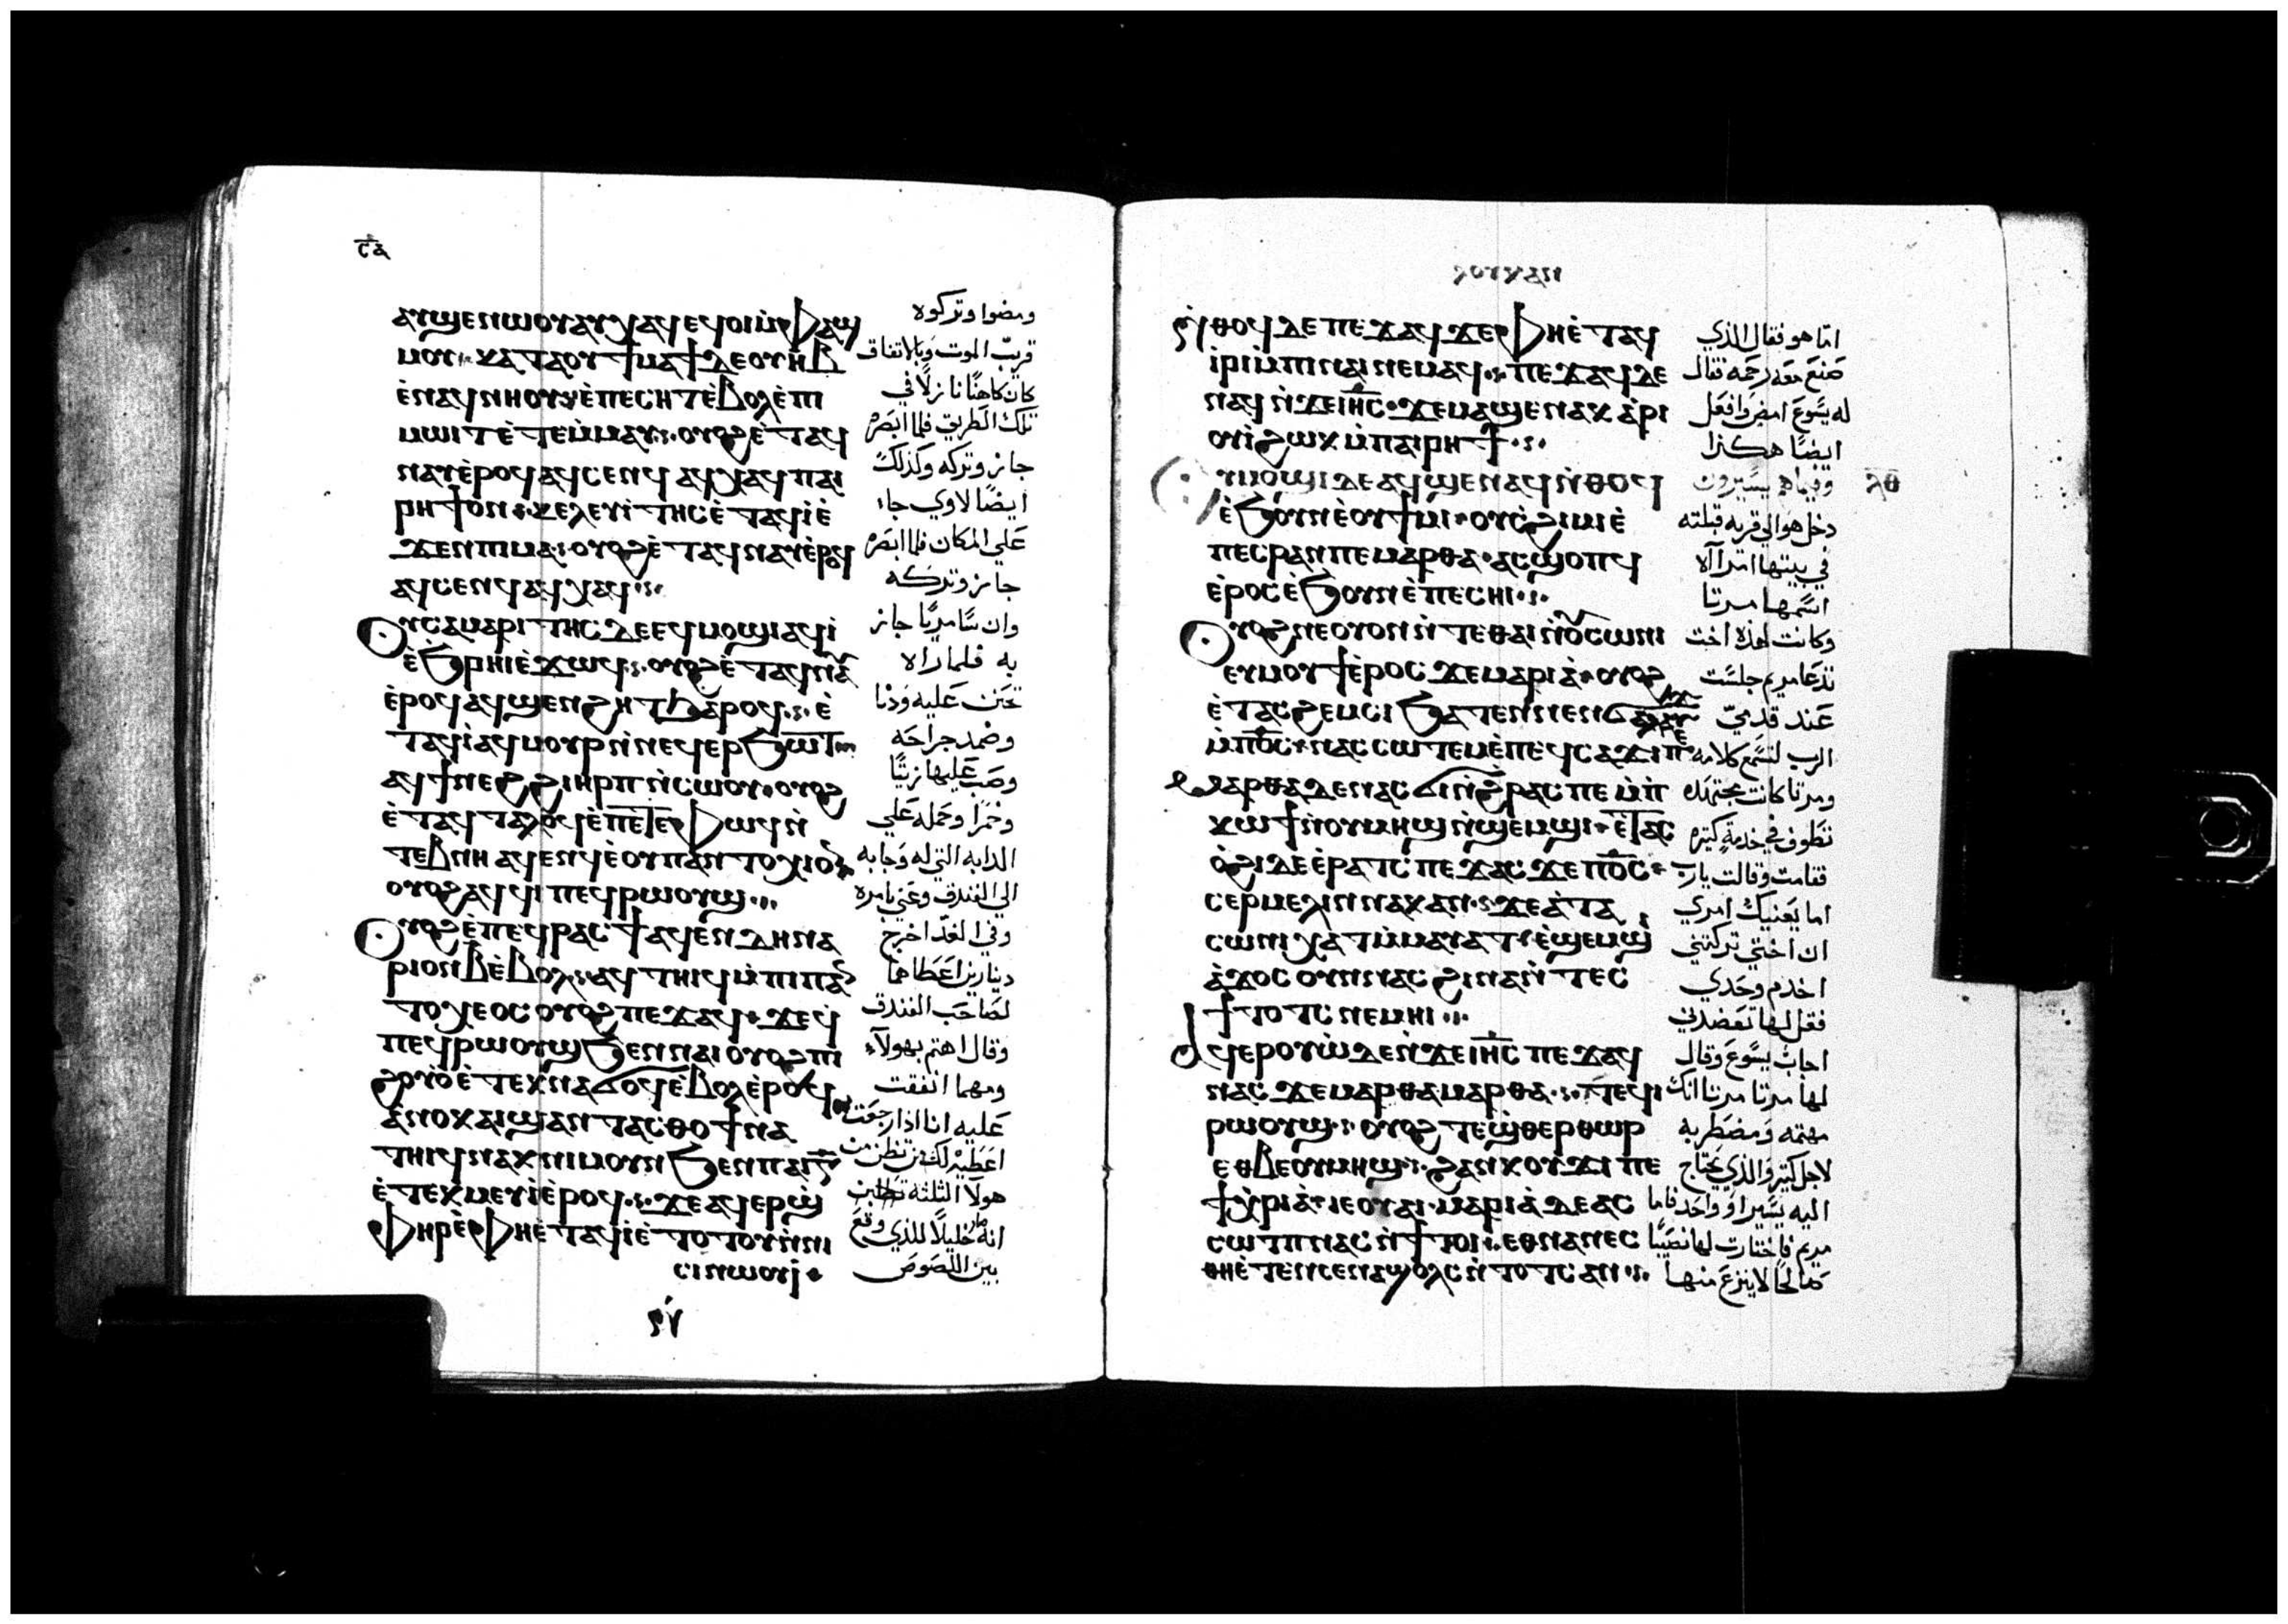 ⲥ̅ⲁ̅
ⲁⲩϣⲉⲛⲱⲟⲩ ⲁⲩⲭⲁϥ ⲉϥⲟⲓ ⲙ̀ⲫⲁϣ
ⲙⲟⲩ ⲕⲁⲧⲁ ⲟⲩϯⲙⲁϯ ⲇⲉ ⲟⲩⲏⲃ
ⲉ̀ⲛⲁϥⲛⲏⲟⲩ ⲉ̀ⲡⲉⲥⲏⲧ ⲉ̀ⲃⲟⲗ ϩⲓ ⲡⲓ
ⲙⲱⲓⲧ ⲉ̀ⲧⲉⲙ̀ⲙⲁⲩ ⲟⲩⲟϩ ⲉ̀ⲧⲁϥ
ⲛⲁⲩ ⲉ̀ⲣⲟϥ ⲁϥⲥⲉⲛϥ ⲁϥⲭⲁϥ ⲡⲁⲓ
ⲣⲏϯ ⲟⲛ ⲕⲉⲗⲉⲩⲓⲧⲏⲥ ⲉ̀ⲧⲁϥⲓ̀ ⲉ̀
ϫⲉⲛ ⲡⲓⲙⲁ ⲟⲩⲟϩ ⲉ̀ⲧⲁϥⲛⲁⲩ ⲉ̀ⲣⲟϥ
ⲁϥⲥⲉⲛϥ ⲁϥⲭⲁϥ
ⲟⲩⲥⲁⲙⲁⲣⲓⲧⲏⲥ ⲇⲉ ⲉϥⲙⲟϣⲓ ⲁϥⲓ̀
ⲉ̀ϧⲣⲏⲓ ⲉ̀ϫⲱϥ ⲟⲩⲟϩ ⲉ̀ⲧⲁϥⲛⲁⲩ
ⲉ̀ⲣⲟϥ ⲁϥϣⲉⲛϩⲏⲧ ϧⲁⲣⲟϥ ⲉ̀
ⲧⲁϥⲓ̀ ⲁϥⲙⲟⲩⲣ ⲛ̀ⲛⲉϥⲉⲣϧⲱⲧ
ⲁϥϯ ⲛⲉϩ ϩⲓ ⲏⲣⲡ ⲛ̀ⲥⲱⲟⲩ ⲟⲩⲟϩ
ⲉ̀ⲧⲁϥⲧⲁⲗⲟϥ ⲉ̀ⲡⲉⲧⲉ ⲫⲱϥ ⲛ̀
ⲧⲉⲃⲛⲏ ⲁϥⲉⲛϥ ⲉ̀ⲟⲩⲡⲁⲛⲧⲟⲭⲓⲟⲛ
ⲟⲩⲟϩ ⲁϥϥⲓ ⲡⲉϥⲣⲱⲟⲩϣ
ⲟⲩⲟϩ ⲉ̀ⲡⲉϥⲣⲁⲥϯ ⲁϥⲉⲛ ⲇⲏⲛⲁ
ⲣⲓⲟⲛ ⲃ̅ ⲉ̀ⲃⲟⲗ ⲁϥⲧⲏⲓϥ ⲙ̀ⲡⲓⲡⲁⲛ
ⲧⲟⲭⲉⲟⲥ ⲟⲩⲟϩ ⲡⲉϫⲁϥ ϫⲉ ϥⲓ
ⲡⲉϥⲣⲱⲟⲩϣ ϧⲉⲛ ⲛⲁⲓ ⲟⲩⲟϩ ⲡⲓ
ϩⲟⲩⲟ̀ ⲉ̀ⲧⲉⲕⲛⲁϭⲟϥ ⲉ̀ⲃⲟⲗ ⲉ̀ⲣⲟϥ
ⲁ̀ⲛⲟⲕ ⲁⲓϣⲁⲛⲧⲁⲥⲑⲟ ϯⲛⲁ
ⲧⲏⲓϥ ⲛⲁⲕ ⲛⲓⲙ ⲟⲩⲛ ϧⲉⲛ ⲡⲁⲓ ⲅ̅
ⲉ̀ⲧⲉⲕⲙⲉⲩⲓ̀ ⲉ̀ⲣⲟϥ ϫⲉ ⲁϥⲉⲣϣ
ⲫⲏⲣ ⲉ̀ⲫⲏ ⲉ̀ⲧⲁϥⲓ̀ ⲉ̀ⲧⲟⲧⲟⲩ ⲛ̀ⲛⲓ
ⲥⲓⲛⲱⲟⲩⲓ
ومضوا وتركوه
قريب الموت وبالاتفاق
كان كاهنًا نازلًا في
تلك الطريق فلما ابصره
جاز وتركه وكذلك
ايضًا لاوي جاء
علي المكان فلما ابصره
جاز وتركه
وان سامريًا جاز
به فلما راه
تحنن عليه ودنا
وضمد جراحه
وصب عليها زيتًا
وخمرًا وحمله علي
الدابه التي له وجابه
الي الفندق وعني بامره
وفي الغد اخرج
دينارين اعطاهما
لصاحب الفندق
وقال اهتم بهولآء
ومهما انفقت
عليه انا اذا رجعت
اعطيه لك فمن تظن من
هولا الثلثه
انه صار خليلًا للذي وقع
بين اللصوص
ⲗⲟⲩⲕⲁⲛ
ⲛ̀ⲑⲟϥ ⲇⲉ ⲡⲉϫⲁϥ ϫⲉ ⲫⲏ ⲉ̀ⲧⲁϥ
ⲓ̀ⲣⲓ ⲙ̀ⲡⲓⲛⲁⲓ ⲛⲉⲙⲁϥ ⲡⲉϫⲁϥ ⲇⲉ
ⲛⲁϥ ⲛ̀ϫⲉ ⲓⲏ̅ⲥ ϫⲉ ⲙⲁϣⲉⲛⲁⲕ ⲁ̀ⲣⲓ
ⲟⲩⲓ̀ ϩⲱⲕ ⲙ̀ⲡⲁⲓⲣⲏϯ
ⲩⲙⲟϣⲓ ⲇⲉ ⲁϥϣⲉⲛⲁϥ ⲛ̀ⲑⲟϥ
ⲉ̀ϧⲟⲩⲛ ⲉ̀ⲟⲩϯⲙⲓ ⲟⲩⲥϩⲓⲙⲓ ⲉ̀
ⲡⲉⲥⲣⲁⲛ ⲡⲉ ⲙⲁⲣⲑⲁ ⲁⲥϣⲟⲡϥ
ⲉ̀ⲣⲟⲥ ⲉ̀ϧⲟⲩⲛ ⲉ̀ⲡⲉⲥⲏⲓ
ⲟⲩⲟϩ ⲛⲉ ⲟⲩⲟⲛ ⲛ̀ⲧⲉ ⲑⲁⲓ ⲛ̀ⲟⲩⲥⲱⲛⲓ
ⲉⲩⲙⲟⲩϯ ⲉ̀ⲣⲟⲥ ϫⲉ ⲙⲁⲣⲓⲁ̀ ⲟⲩⲟϩ
ⲉ̀ⲧⲁⲥϩⲉⲙⲥⲓ ϧⲁⲧⲉⲛ ⲛⲉⲛϭⲁⲗⲁⲩϫ
ⲙ̀ⲡⲟ̅ⲥ ⲛⲁⲥⲥⲱⲧⲉⲙ ⲉ̀ⲡⲉϥⲥⲁϫⲓ ⲡⲉ
ⲙⲁⲣⲑⲁ ⲇⲉ ⲛⲁⲥϭⲓ ⲛ̀ϩⲣⲁⲥ ⲡⲉ ⲙ̀ⲡ
ⲕⲱϯ ⲛ̀ⲟⲩⲙⲏϣ ⲛ̀ϣⲉⲙϣⲓ ⲉ̀ⲧⲁⲥ
ⲟ̀ϩⲓ ⲇⲉ ⲉ̀ⲣⲁⲧⲥ ⲡⲉϫⲁⲥ ϫⲉ ⲡⲟ̅ⲥ
ⲥⲉⲣⲙⲉⲗⲓⲛ ⲛⲁⲕ ⲁⲛ ϫⲉ ⲁ̀ ⲧⲁ
ⲥⲱⲛⲓ ⲭⲁⲧ ⲙ̀ⲙⲁⲩⲁⲧ ⲉ̀ϣⲉⲙϣⲓ
ⲁ̀ϫⲟⲥ ⲟⲩⲛ ⲛⲁⲥ ϩⲓⲛⲁ ⲛ̀ⲧⲉⲥ
ϯⲧⲟⲧⲥ ⲛⲉⲙⲏⲓ
ⲁϥⲉⲣⲟⲩⲱ̀ ⲇⲉ ⲛ̀ϫⲉ ⲓⲏ̅ⲥ ⲡⲉϫⲁϥ
ⲛⲁⲥ ϫⲉ ⲙⲁⲣⲑⲁ ⲙⲁⲣⲑⲁ ⲧⲉϥⲓ
ⲣⲱⲟⲩϣ ⲟⲩⲟϩ ⲧⲉϣⲑⲉⲣⲑⲱⲣ
ⲉⲑⲃⲉ ⲟⲩⲙⲏϣ ϩⲁⲛⲕⲟⲩϫⲓ ⲡⲉ
ϯⲭⲣⲓⲁ̀ ⲓⲉ ⲟⲩⲁⲓ ⲙⲁⲣⲓⲁ̀ ⲇⲉ ⲁⲥ
ⲥⲱⲧⲡ ⲛⲁⲥ ⲛ̀ϯⲧⲟⲓ ⲉⲑⲛⲁⲛⲉⲥ
ⲑⲏ ⲉ̀ⲧⲉⲛⲥⲉⲛⲁϣⲟⲗⲥ ⲛ̀ⲧⲟⲧⲥ ⲁⲛ
امّا هو فقال الذي
صنع معه رحمه فقال
له يسوع امض وافعل
ايضًا هكذا
وفيما هم يسيرون
ⲗⲑ
دخل هو الي قريه قبلته
في بيتها امرآه
اسمها مرتا
وكانت لهذه اخت
تدعا مريم جلست
عند قدميّ
الرب لتسمع كلامه
ومرتا كانت مجتهده
تطوف في خدمة كتيره
فقامت وقالت يارب
اما يعنيك امري
ان اختي تركتني
اخدم وحدي
فقل لها تعضدني
اجاب يسوع وقال
لها مرتا مرتا انك
مهتمه ومضطربه
لاجل كتير والذي يحتاج
اليه يسيرا او واحد فاما
مريم فاختارت لها نصيبًا
صالحًا لا ينزع منها